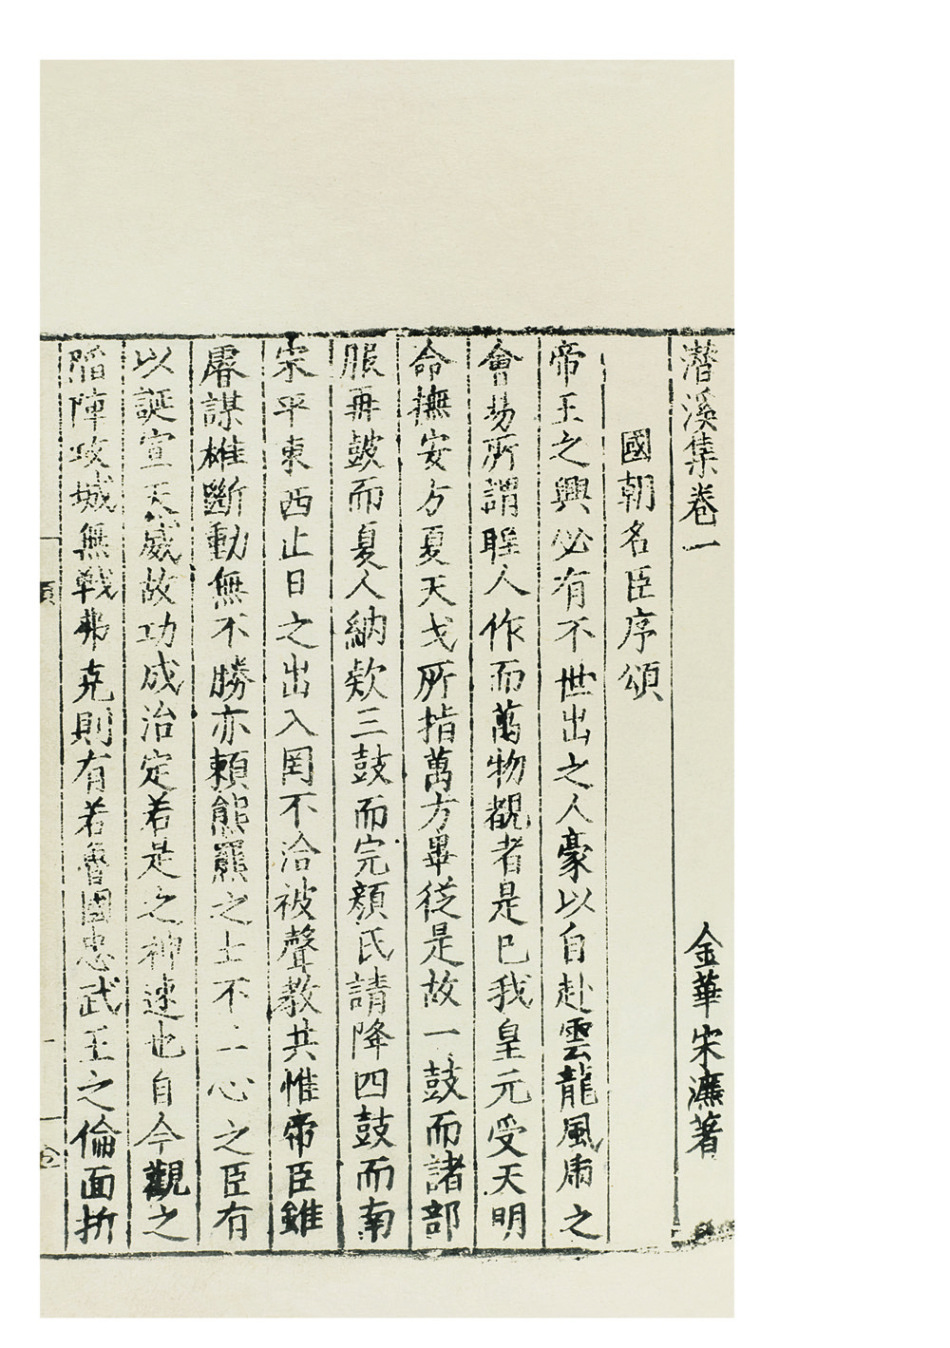 潛溪集卷一 金華宋濂著
國朝名臣序頌
帝王之興必有不世出之人豪以自赴雲龍風虎之
會易所謂聖人作而萬物覩者是已我皇元受天明
命撫安方夏天戈所指萬方畢從是故一鼓而諸部
服再鼓而夏人納欵三鼓而完顏氏請降四鼓而南
宋平東西止日之出入罔不洽被聲教共惟帝臣雖
睿謀雄斷動無不勝亦賴熊羆之士不二心之臣有
以誕宣天威故功成治定若是之神速也自今觀之
䧟陣攻城無戰弗克則有若魯國忠武王之倫面折